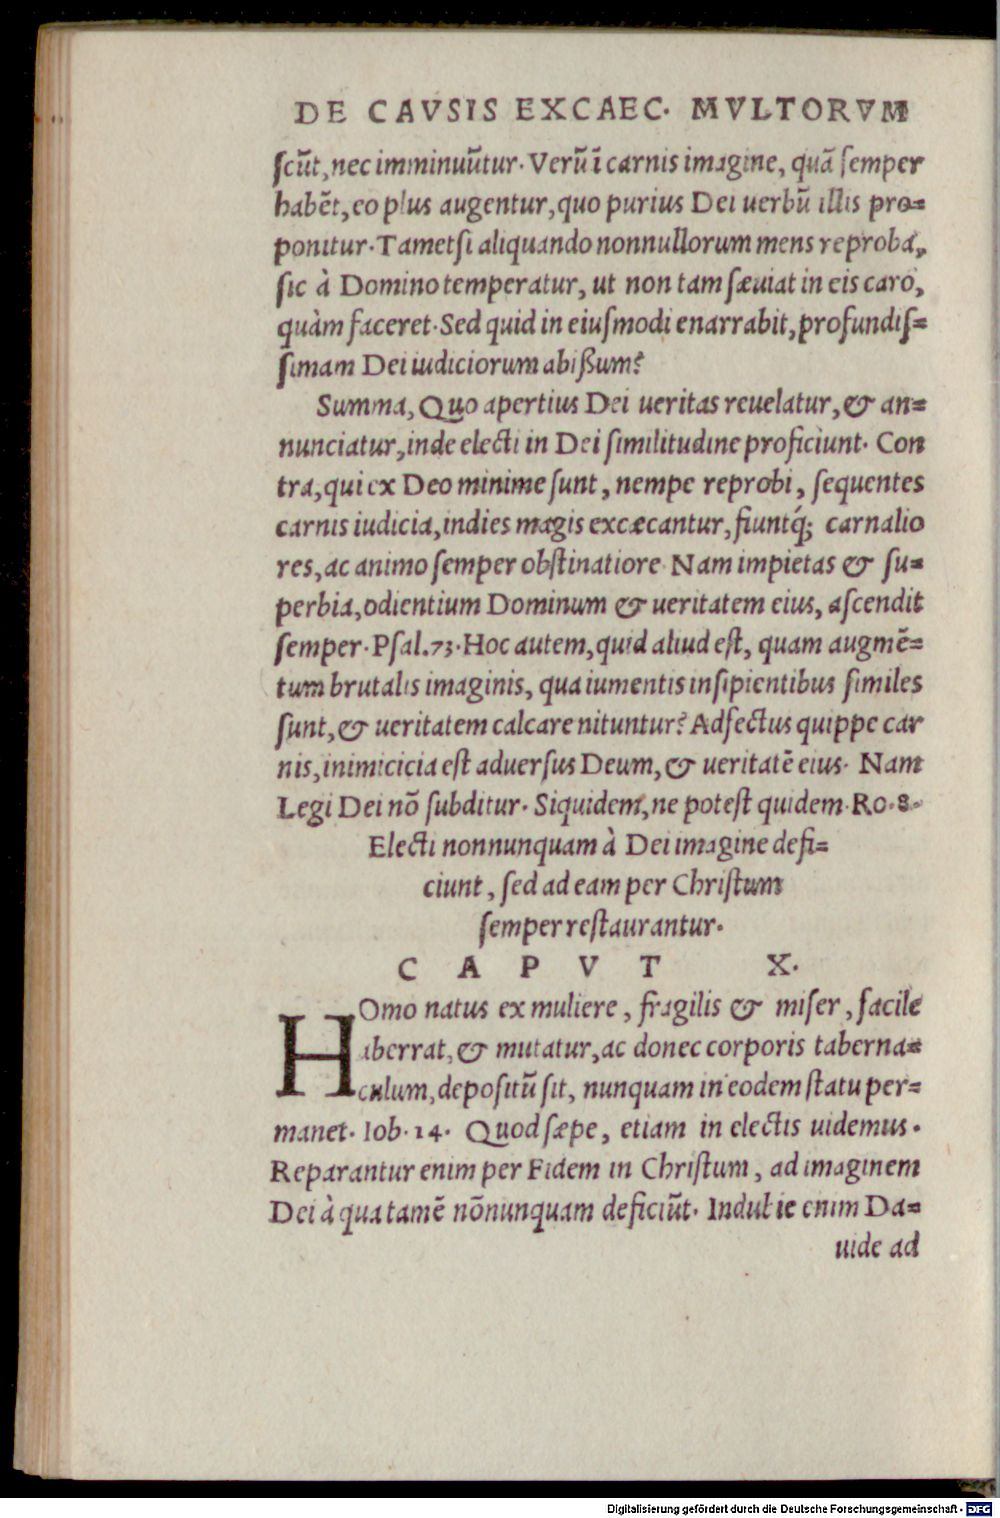 DE CAVSIS EXCAEC. MVLTORVM
ſcũt, nec imminuũtur. Verũ ĩ carnis imagine, quã ſemper
habẽt, eo plus augentur, quo purius Dei uerbũ illis pro=
ponitur. Tametſi aliquando nonnullorum mens reproba,
ſic à Domino temperatur, ut non tam ſæuiat in eis caro,
quàm faceret. Sed quid in eiuſmodi enarrabit, profundiſ=
ſimam Dei iudiciorum abißum?
Summa, Quo apertius Dei ueritas reuelatur, & an=
nunciatur, inde electi in Dei ſimilitudine proficiunt. Con
tra, qui ex Deo minime ſunt, nempe reprobi, ſequentes
carnis iudicia, indies magis excæcantur, fiuntq́; carnalio
res, ac animo ſemper obſtinatiore Nam impietas & ſu=
perbia, odientium Dominum & ueritatem eius, aſcendit
ſemper. Pſal. 73. Hoc autem, quid aliud eſt, quam augmẽ=
tum brutalis imaginis, qua iumentis inſipientibus ſimiles
ſunt, & ueritatem calcare nituntur? Adfectus quippe car
nis, inimicicia eſt aduerſus Deum, & ueritatẽ eius. Nam
Legi Dei nõ ſubditur. Siquidem, ne poteſt quidem. Ro. 8.
Electi nonnunquam à Dei imagine defi=
ciunt, ſed ad eam per Chriſtum
ſemper reſtaurantur.
CAPVT X.
HOmo natus ex muliere, fragilis & miſer, facile
aberrat, & mutatur, ac donec corporis taberna=
culum, depoſitũ ſit, nunquam in eodem ſtatu per=
manet. Iob. 14. Quod ſæpe, etiam in electis uidemus.
Reparantur enim per Fidem in Chriſtum, ad imaginem
Dei à qua tamẽ nõnunquam deficiũt. Indulsie enim Da=
uide ad
Digitalisierung gefördert durch die Deutsche Forschungsgemeinschaft - DFG